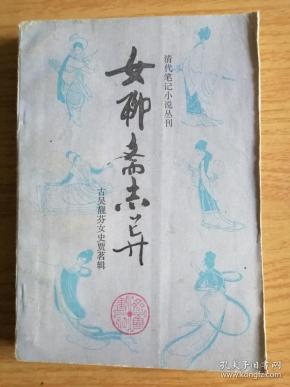 清代笔记小说丛刊
女聊斋志异
古吴靓芬女史贾茗辑
孔夫子旧书网